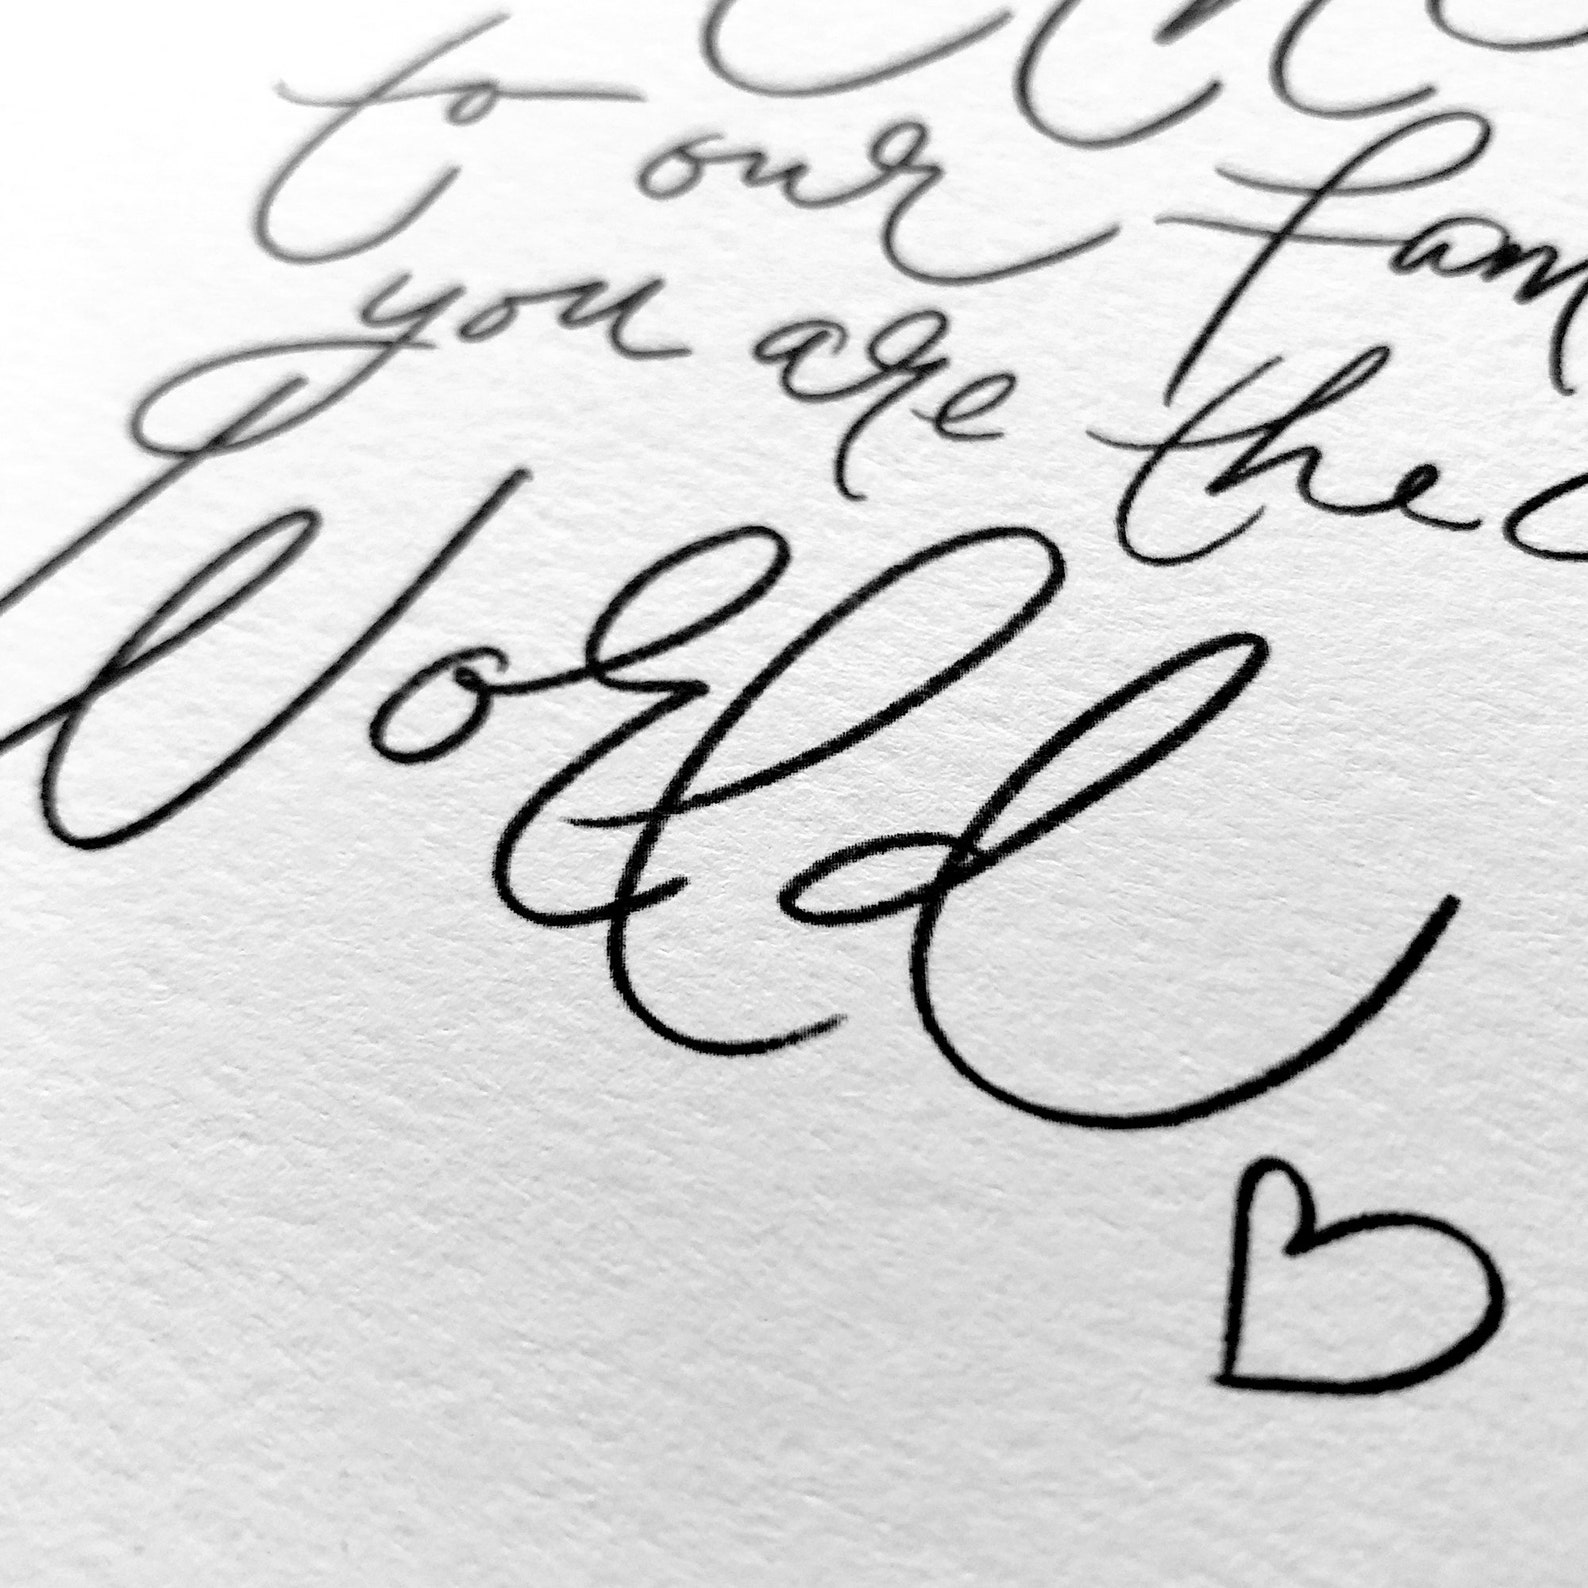 to our fam
you are the
World